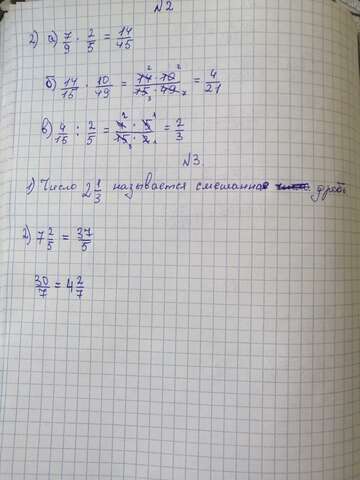 №2
2) а) 7/9 · 2/5 = 14/45
б) 14/15 · 10/49 = 14·10/15·49 = 4/21
в) 4/15 : 2/5 = 4·5/15·2 = 2/3
№3.
1) Число 2 1/3 называется смешанной дробь
2) 7 2/5 = 37/5
30/7 = 4 2/7